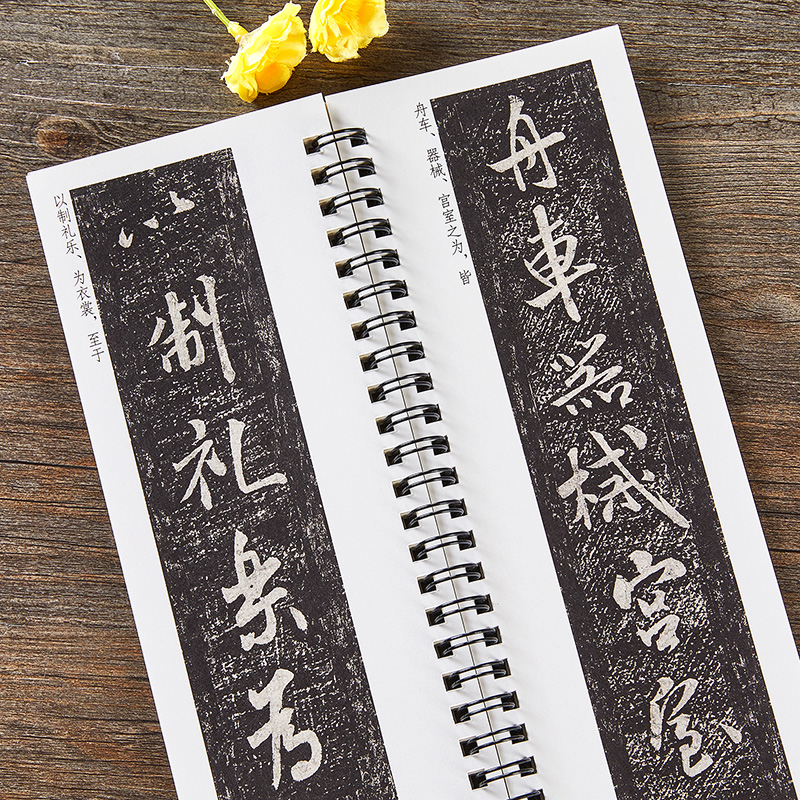 以制礼乐、为衣裳，至于
以制礼樂为
舟车、器械、宫室之为，皆
舟車器械宮室